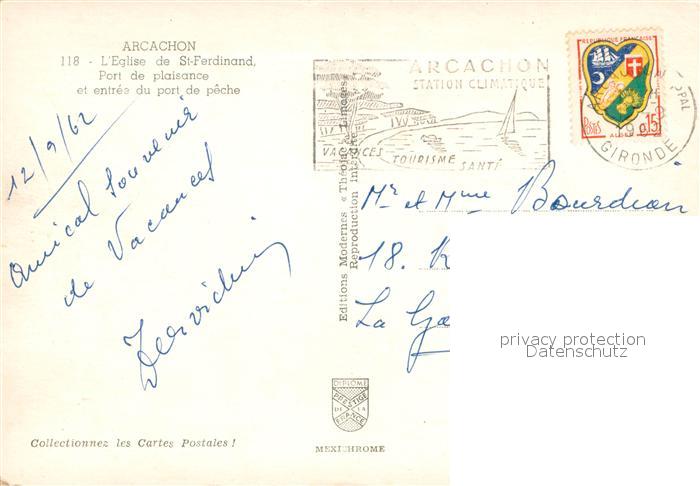 ARCACHON
118 - L'Eglise de St-Ferdinand,
Port de plaisance
et entrée du port de pêche
12/9/62
Amical souvenir
de Vacances
Collectionnez les Cartes Postales !
Editions Modernes « Théojac » Limoges
Reproduction interdite
DIPLOME
PRESTIGE
DE LA
FRANCE
MEXICHROME
ARCACHON
STATION CLIMATIQUE
VACANCES
TOURISME
SANTÉ
REPUBLIQUE FRANÇAISE
POSTES
0,15
ALGER
GIRONDE
Mr et Mme Bourdeau
18.
La
privacy protection
Datenschutz